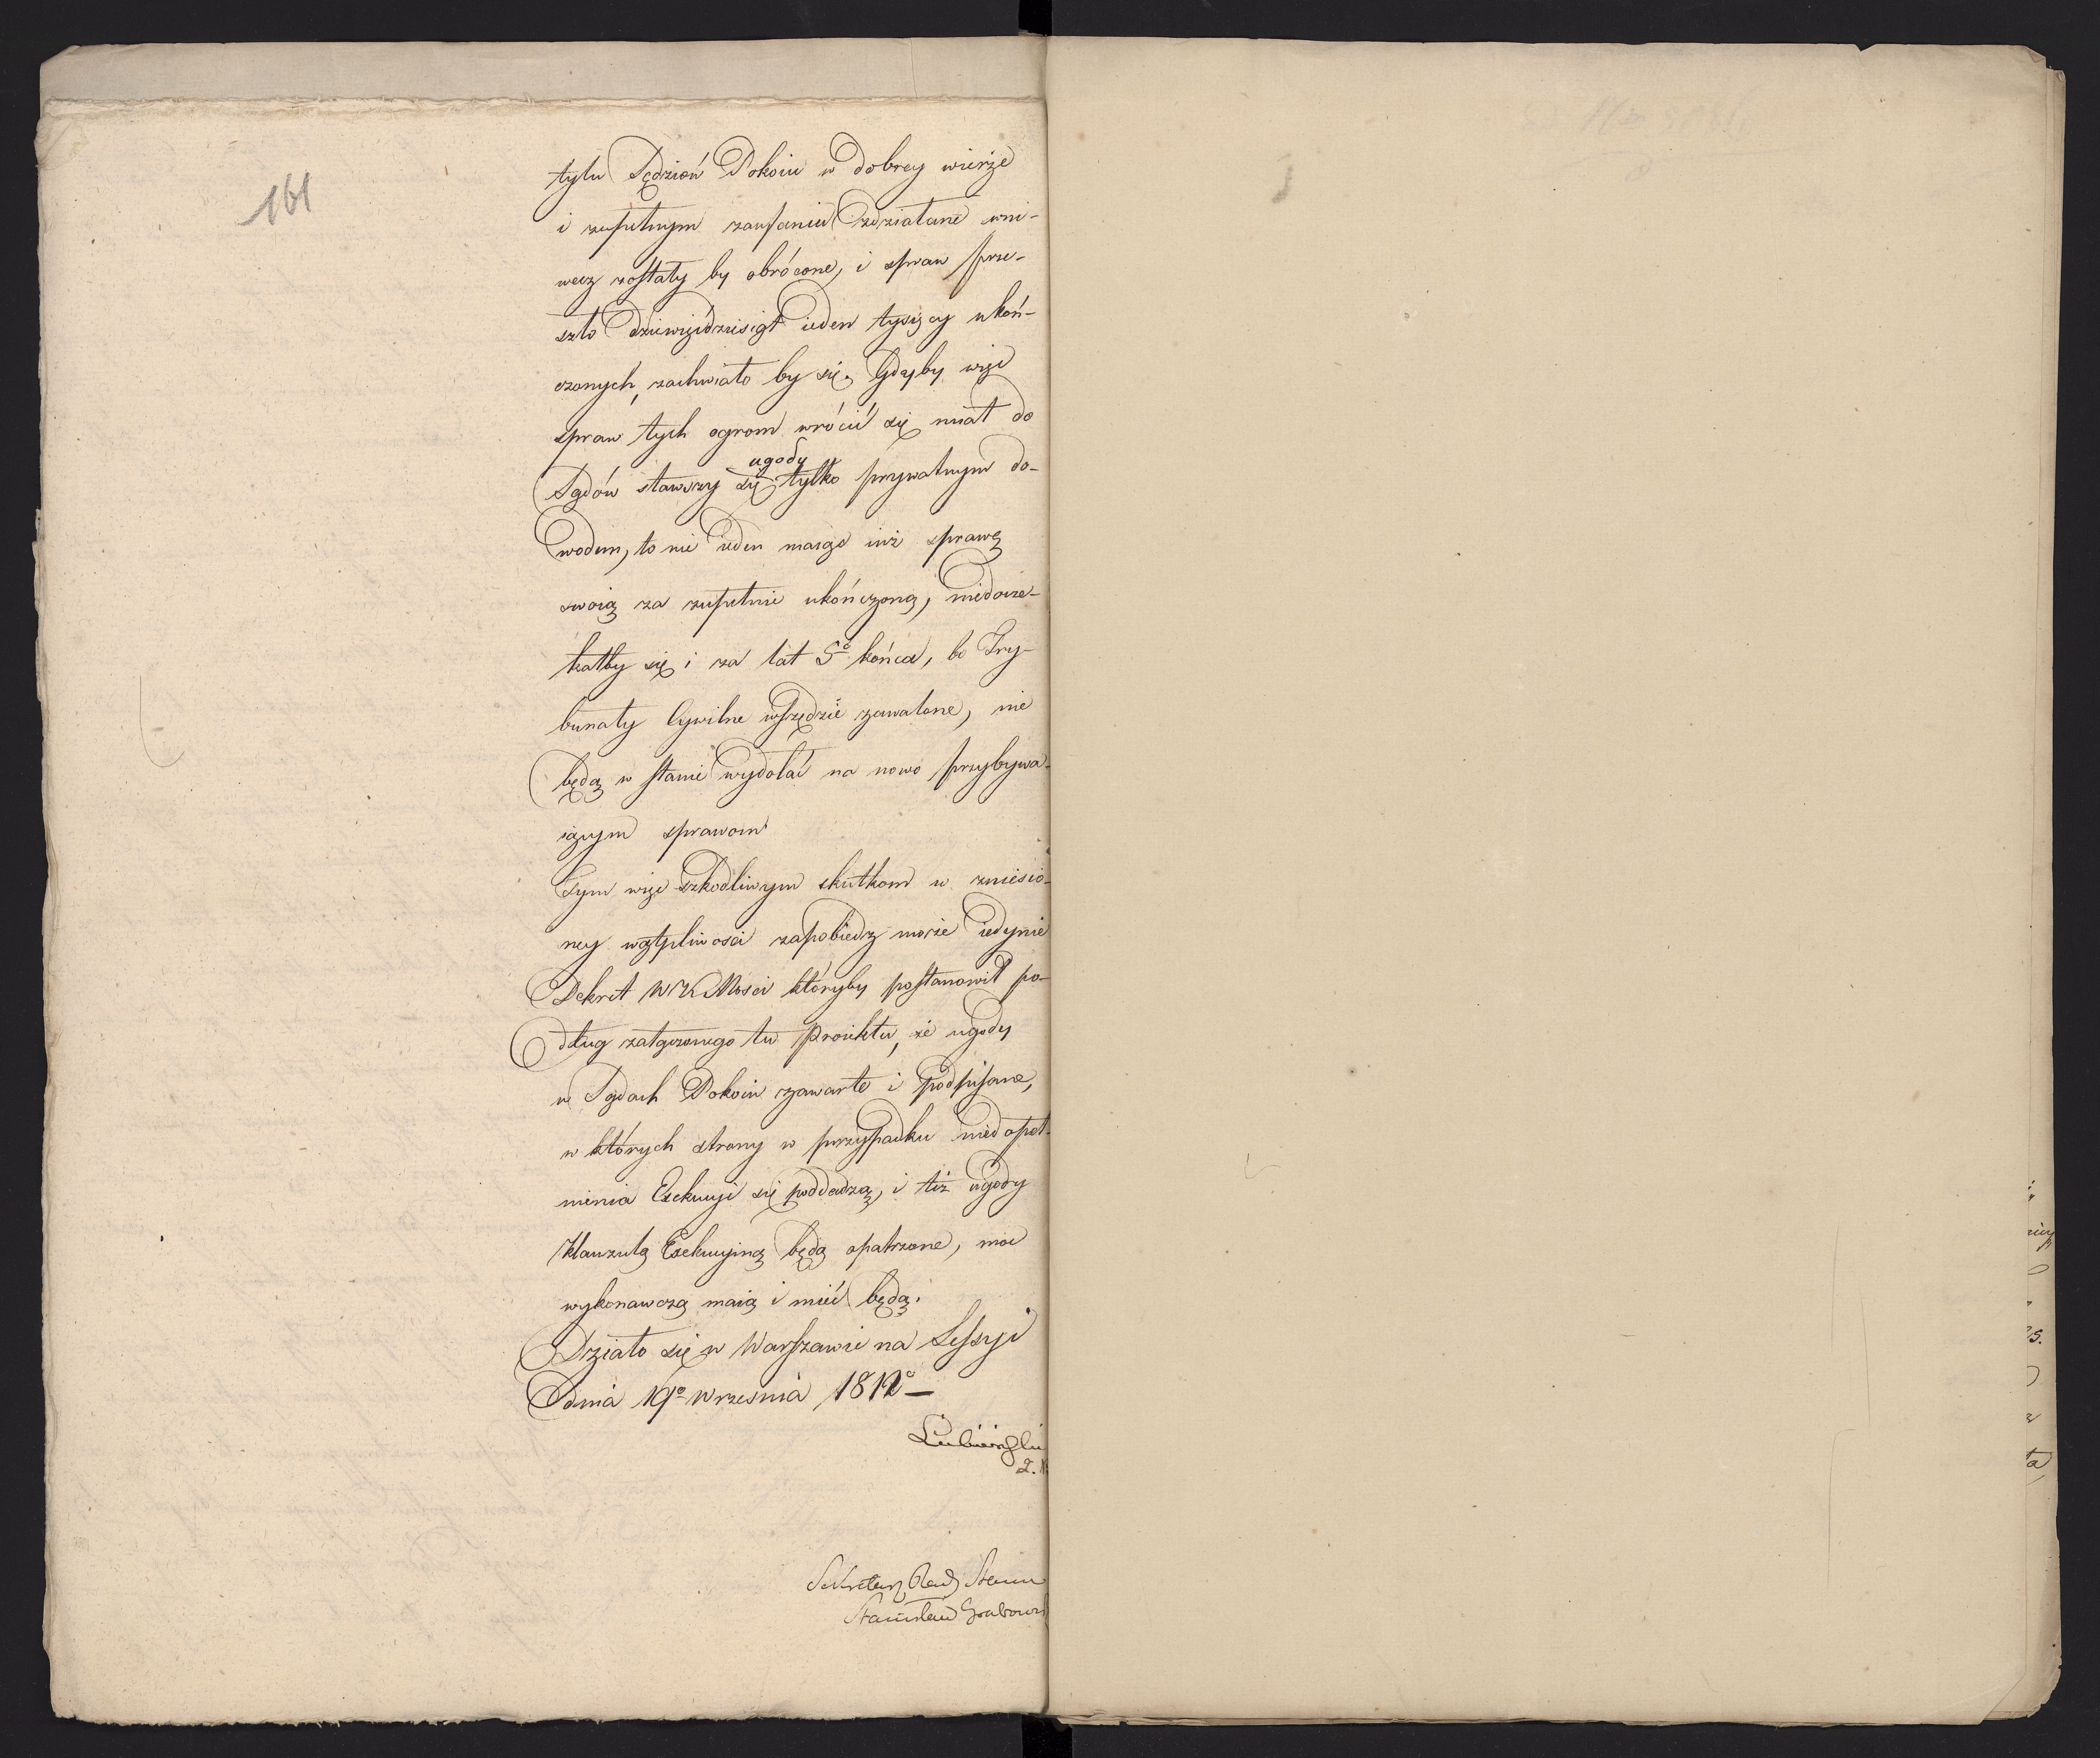 161
tylu Sędziów Pokoiu w dobrey wierze
i zupełnym zaufaniu zdziałane wni-
wecz zostały by obrócone, i spraw prze-
szło dziewięćdziesiąt ieden tysięcy ukoń-
czonych, zachwiało by się. Gdyby więc
spraw tych ogrom wrócić się miał do
Sądów stawszy się ugody tylko prywatnym do-
wodem, to nie ieden maiąc iuż sprawę
swoią za zupełnie ukończoną, niedocze-
kałby się i za lat 5ć końca, bo Try-
bunały Cywilne wszędzie zawalone, nie
będą w stanie wydołać na nowo przybywa-
iącym sprawom
Tym więc szkodliwym skutkom w zniesio-
ney wątpliwości zapobiedz może iedynie
Dekret WKMości któryby postanowił po-
dług załączonego tu Proiektu, że ugody
w Sądach Pokoiu zawarte i podpisane,
w których strony w przypadku niedopeł-
nienia Exekucyi się poddadzą, i też ugody
Klauzulą Exekucyiną będą opatrzone, moc
wykonawczą maią i mieć będą.
Działo się w Warszawie na Sessyi
dnia 19o Września 1812o
Lubieński
Sekretarz Rady Stanu
Stanisław Grabowsk